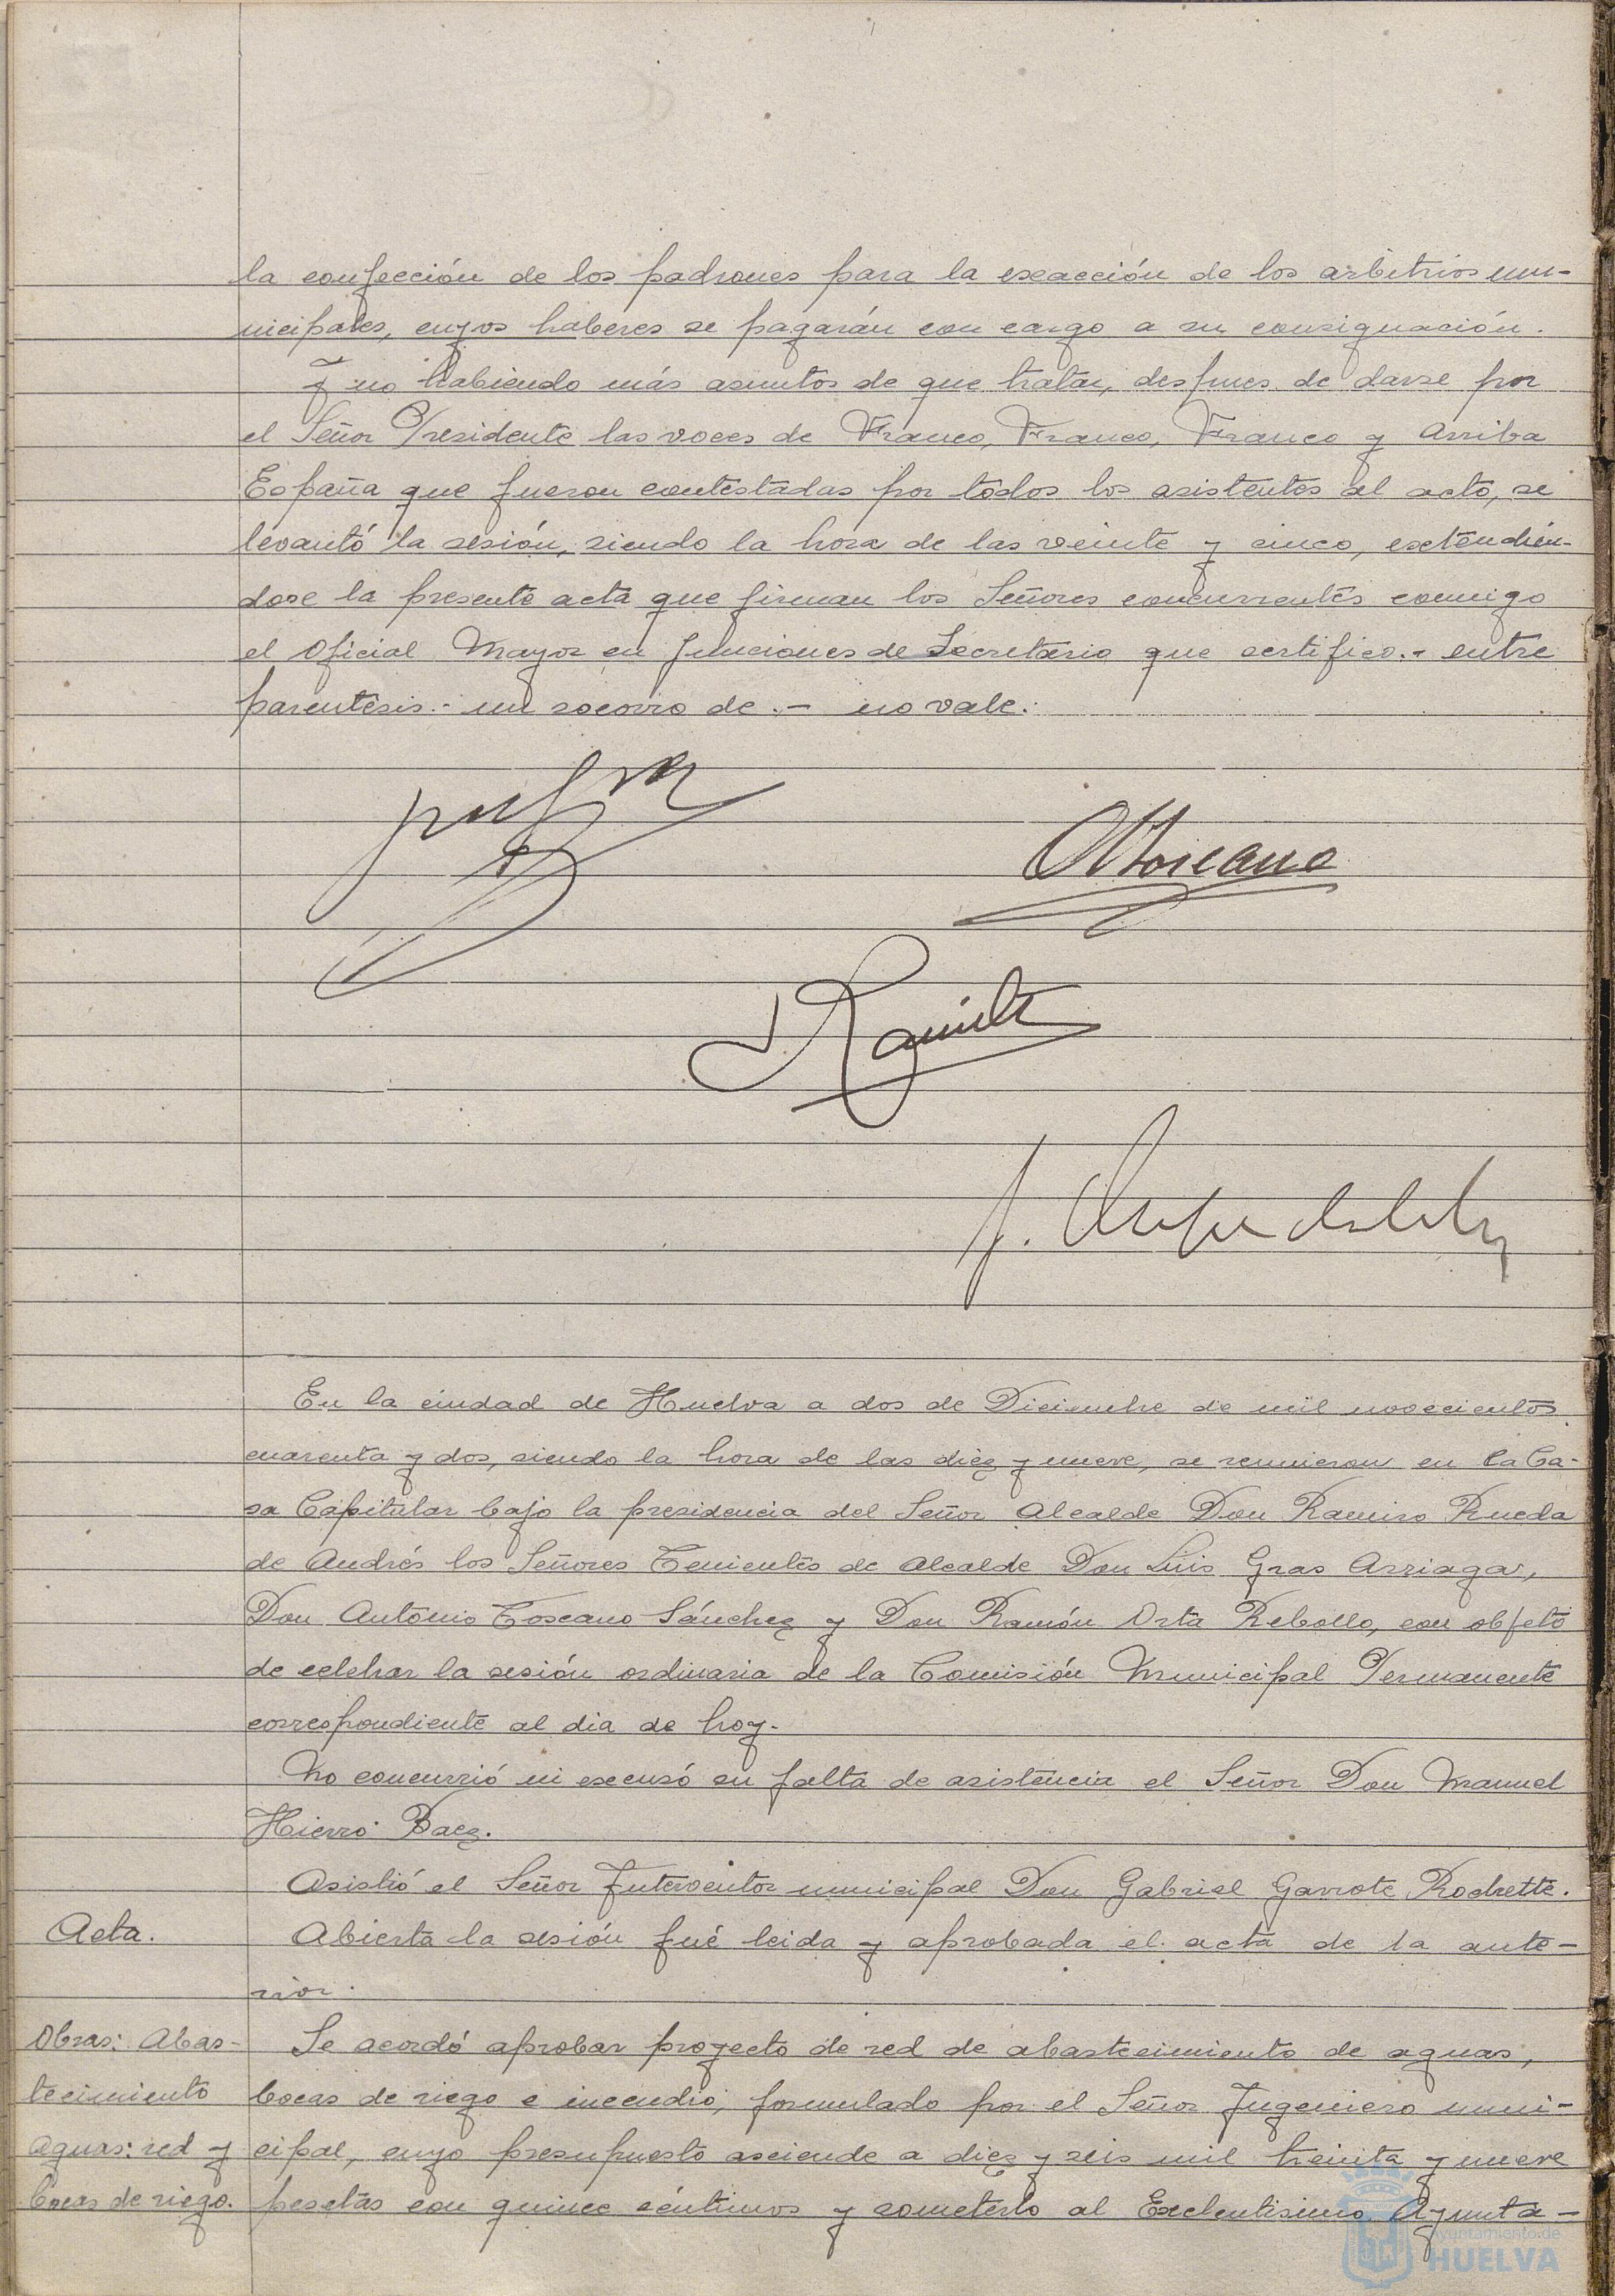 la confección de los padrones para la exacción de los arbitrios mu-
nicipales, cuyos haberes se pagarán con cargo a su consignación.
Y no habiendo más asuntos de que tratar, despues de darse por
el Señor Presidente las voces de Franco, Franco, Franco y Arriba
España que fueron contestadas por todos los asistentes al acto, se
levantó la sesión, siendo la hora de las veinte y cinco, extendién-
dose la presente acta que firman los Señores concurrentes conmigo
el Oficial Mayor en funciones de Secretario que certifico.- entre
parentesis.- un socorro de.- no vale.
AToscano
En la ciudad de Huelva a dos de Diciembre de mil novecientos
cuarenta y dos, siendo la hora de las diez y nueve, se reunieron en la Ca-
sa Capitular bajo la presidencia del Señor Alcalde Don Ramiro Rueda
de Andrés los Señores Tenientes de Alcalde Don Luis Gras Arriaga,
Don Antonio Toscano Sánchez y Don Ramón Orta Rebollo, con objeto
de celebrar la sesión ordinaria de la Comisión Municipal Permanente
correspondiente al dia de hoy.-
No concurrió ni excusó su falta de asistencia el Señor Don Manuel
Hierro Baez.
Asistió el Señor Interventor municipal Don Gabriel Garrote Rochette.
Acta. Abierta la sesión fué leida y aprobada el acta de la ante-
rior.
Obras: Abas- Se acordó aprobar proyecto de red de abastecimiento de aguas,
tecimiento bocas de riego e incendio, formulado por el Señor Ingeniero muni-
aguas: red y cipal, cuyo presupuesto asciende a diez y seis mil treinta y nueve
bocas de riego. pesetas con quince céntimos y someterlo al Exclentisimo Ayunta-
Ayuntamiento de
HUELVA